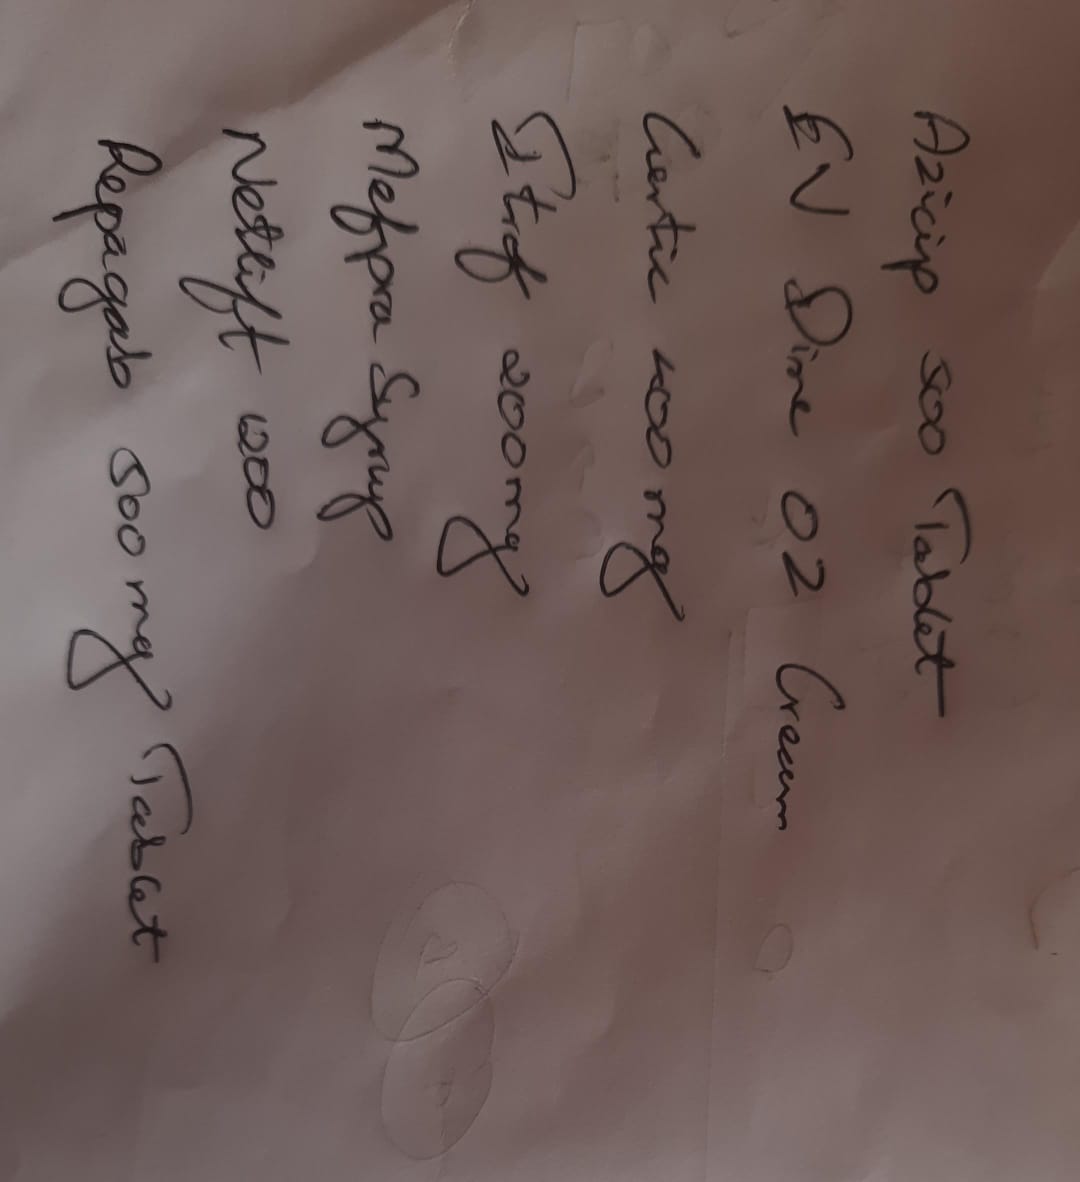 Azicip 500 Tablet
EV Dime 02 Cream
400 mg
200mg
Mefpra Syrup
Netlift 1200
Repagab 500 mg Tablet